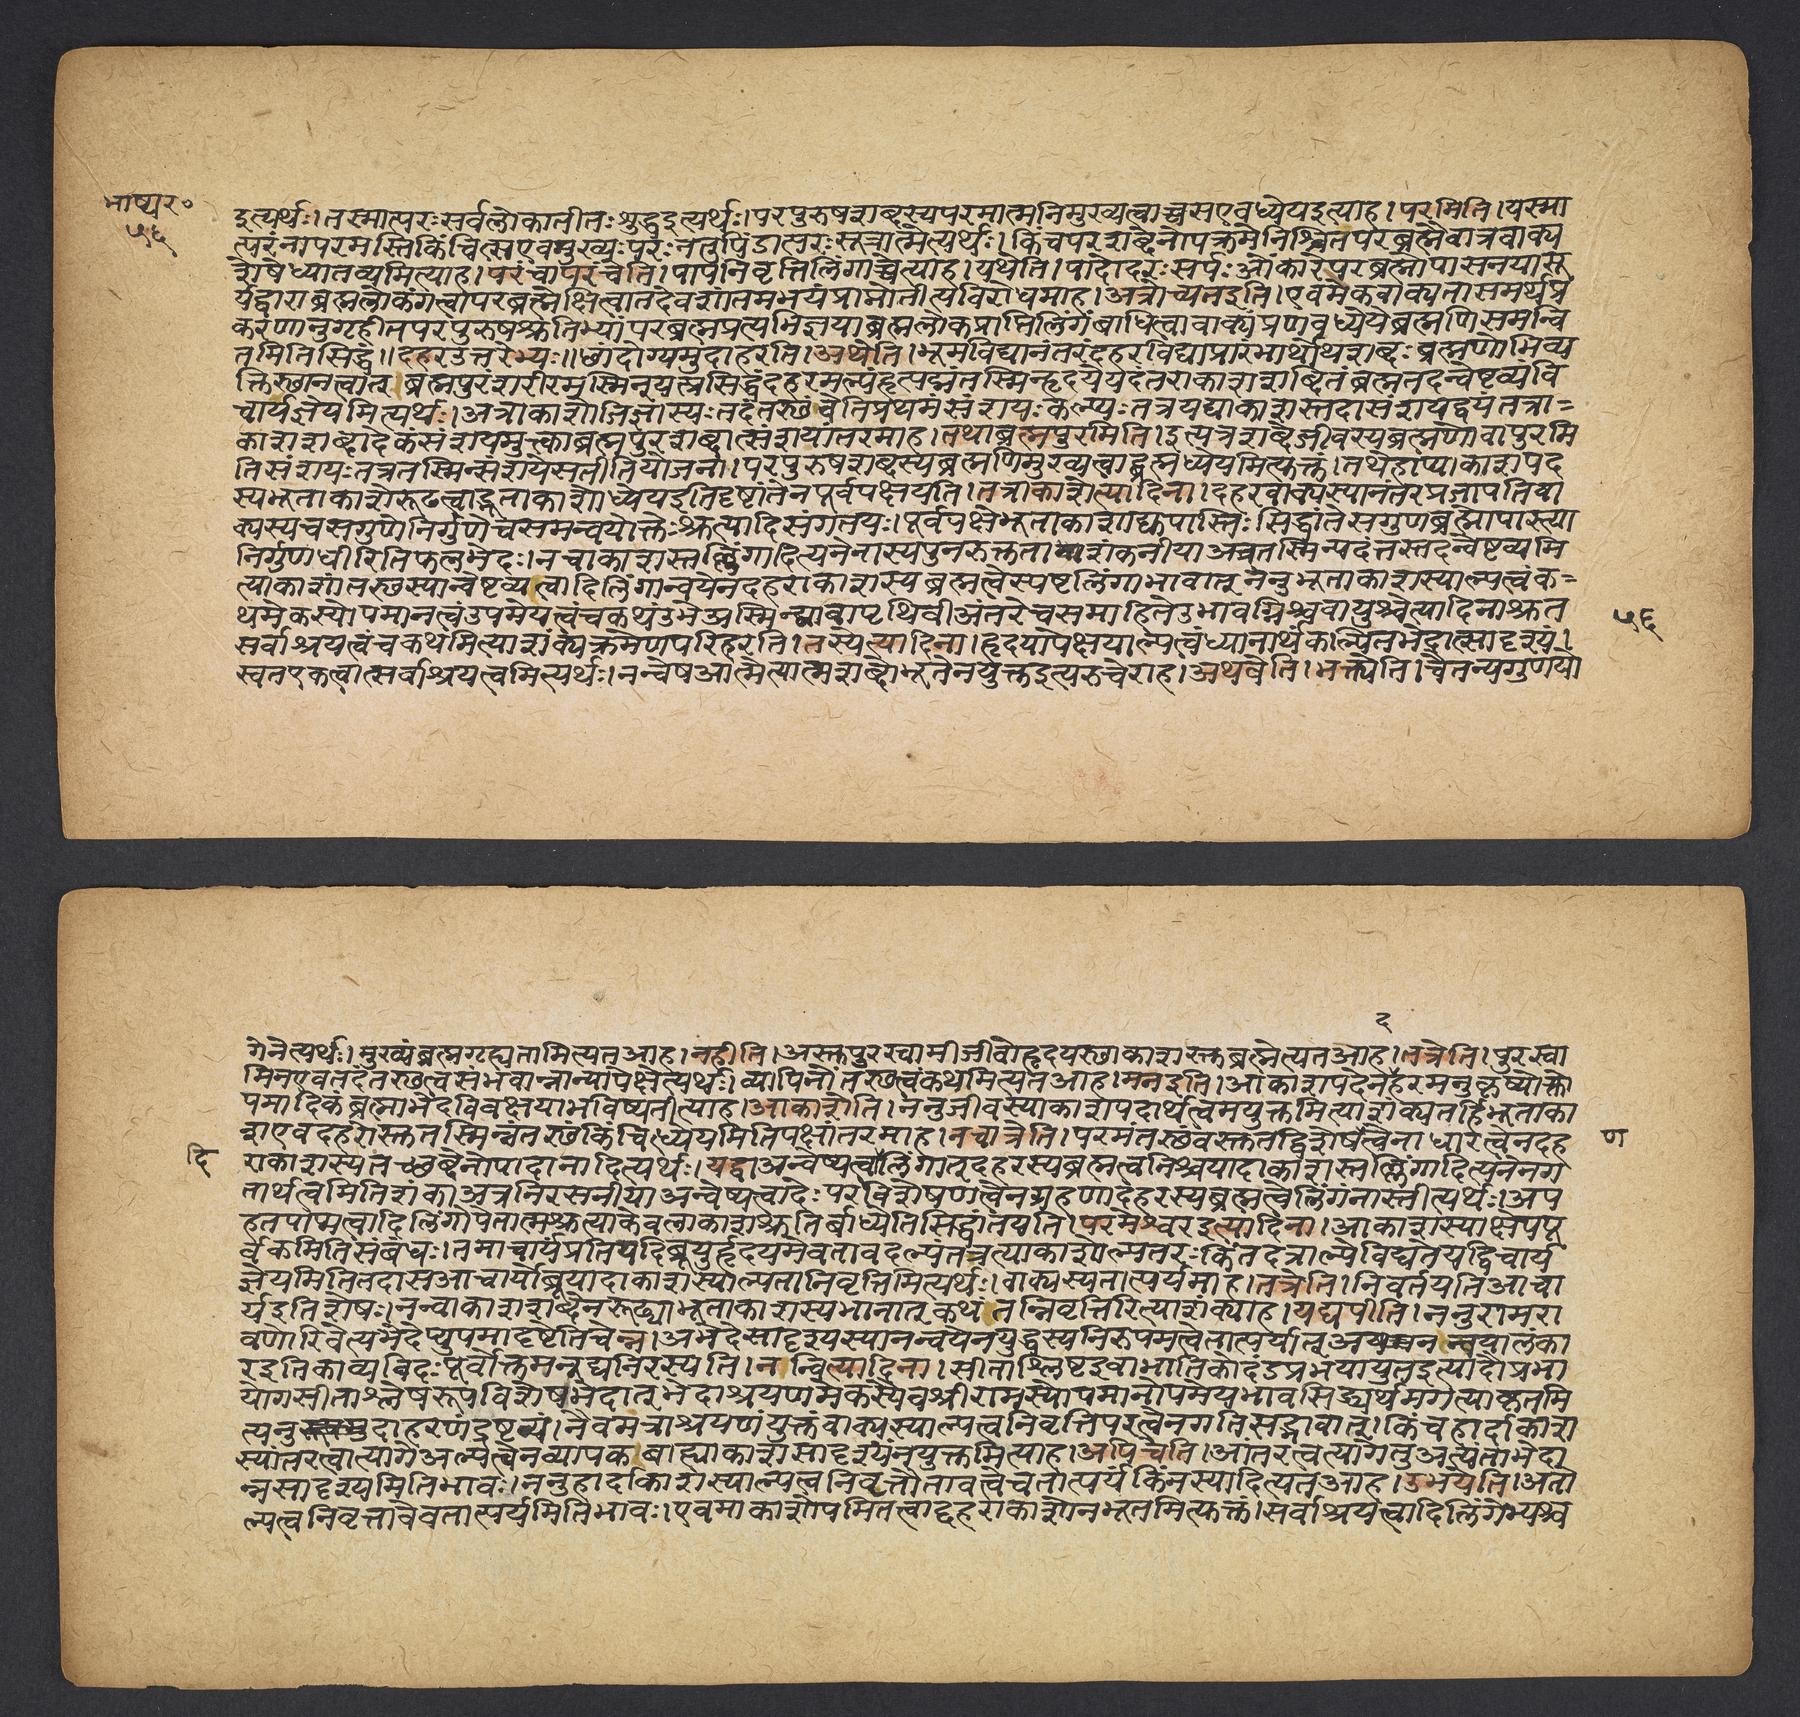 भाष्यर०
५६
इत्यर्थः।तस्मात्परःसर्वलोकातीतःशुद्धइत्यर्थः।परपुरुषशब्दस्यपरमात्मनिमुख्यत्वाच्चसएवध्येयइत्याह।परमिति।यस्मा
त्परंनापरमस्तिकिंचित्सएवमुख्यःपरःनतुपिंडात्परःसूत्रात्मेत्यर्थः।किंचपरशब्देनोपक्रमेनिश्चितंपरंब्रह्मैवात्रवाक्य
शेषेध्यातव्यमित्याह।परंचापरंचेति।पापनिवृत्तिलिंगाच्चेत्याह।यथेति।पादोदरःसर्पःओंकारेपरब्रह्मोपासनयासू
र्यद्वाराब्रह्मलोकंगत्वापरब्रह्मेक्षित्वातदेवशांतमभयंप्राप्नोतीत्यविरोधमाह।अत्रोच्यतइति।एवमेकवाक्यतासमर्थप्र
करणानुगृहीतपरपुरुषश्रुतिभ्यांपरब्रह्मप्रत्यभिज्ञयाब्रह्मलोकप्राप्तिलिंगंबाधित्वावाक्यंप्रणवध्येयेब्रह्मणिसमन्वि
तमितिसिद्धं॥दहरउत्तरेभ्यः॥छांदोग्यमुदाहरति।अथेति।भूमविद्यानंतरंदहरविद्याप्रारंभार्थोथशब्दःब्रह्मणोभिव्य
क्तिस्थानत्वात् ब्रह्मपुरंशरीरमस्मिन्यत्प्रसिद्धंदहरमल्पंहृत्पद्मंतस्मिन्हृदयेयदंतराकाशशब्दितंब्रह्मतदन्वेष्टव्यंवि
चार्यज्ञेयमित्यर्थः।अत्राकाशोजिज्ञास्यःतदंतस्थंचेतिप्रथमंसंशयःकल्प्यःतत्रयद्याकाशस्तदासंशयद्वयंतत्रा=
काशशब्दादेकंसंशयमुक्त्वाब्रह्मपुरशब्दात्संशयांतरमाह।तथाब्रह्मपुरमिति।इत्यत्रशब्देजीवस्यब्रह्मणोवापुरमि
तिसंशयःतत्रतस्मिन्संशयेसतीतियोजना।परपुरुषशब्दस्यब्रह्मणिमुख्यत्वाद्ब्रह्मध्येयमित्युक्तं।तथेहाप्या।काशपद
स्यभूताकाशेरूढत्वाद्भूताकाशोध्येयइतिदृष्टांतेनपूर्वपक्षयति।तत्राकाशेत्यादिना।दहरवाक्यस्यानंतरप्रजापतिवा
क्यस्यचसगुणेनिर्गुणेचसमन्वयोक्तेःश्रुत्यादिसंगतयः।पूर्वपक्षेभूताकाशाद्युपास्तिःसिद्धांतेसगुणब्रह्मोपास्त्या
निर्गुणधीरितिफलभेदः।नचाकाशस्तल्लिंगादित्यनेनास्यपुनरुक्तताशंकनीयाअत्रतस्मिन्यदंतस्तदन्वेष्टव्यमि
त्याकाशांतस्थस्यान्वेष्टव्यत्वादिलिंगान्वयेनदहराकाशस्यब्रह्मत्वेस्पष्टलिंगाभावात् ननुभूताकाशस्याल्पत्वंक=
थमेकस्योपमानत्वंउपमेयत्वंचकथंउभेअस्मिन्द्यावापृथिवीअंतरेवसमाहितेउभावग्निश्चवायुश्चेत्यादिनाश्रुत
सर्वाश्रयत्वंचकथमित्याशंक्यक्रमेणपरिहरति।तस्येत्यादिना।हृदयापेक्षयाल्पत्वंध्यानार्थंकल्पितभेदात्सादृश्यं।
स्वतएकत्वात्सर्वाश्रयत्वमित्यर्थः।नन्वेषआत्मेत्यात्मशब्दोभूतेनयुक्तइत्यरुचेराह।अथवेति।भक्त्येति।चैतन्यगुणयो
५६
द
गेनेत्यर्थः।मुख्यंब्रह्मगृह्यतामित्यतआह।नहीति।अस्तुपुरस्वामीजीवोहृदयस्थाकाशस्तुब्रह्मेत्यतआह।तत्रेति।पुरस्वा
मिनएवतदंतस्थत्वसंभवान्नान्यापेक्षेत्यर्थः।व्यापिनोंतस्थत्वंकथमित्यतआह।मनइति।आकाशपदेनहरमनुकृष्योक्तो
पमादिकंब्रह्माभेदविवक्षयाभविष्यतीत्याह।आकाशेति।ननुजीवस्याकाशपदार्थत्वमयुक्तमित्याशंक्यतर्हिभूताका
शएवदहरोस्तुतस्मिन्नंतस्थंकिंचिद्ध्येयमितिपक्षांतरमाह।नचात्रेति।परमंतस्थंवस्तुतद्विशेषत्वेनाधारत्वेनदह
ण
दि
राकाशस्यतच्छब्देनोपादानादित्यर्थः।यद्वाअन्वेष्यत्वलिंगात्दहरस्यब्रह्मत्वनिश्चयादाकाशस्तल्लिंगादित्यनेनग
तार्थत्वमितिशंकाअत्रनिरसनीयाअन्वेष्यत्वादेःपरविशेषणत्वेनग्रहणाद्दहरस्यब्रह्मत्वेलिंगंनास्तीत्यर्थः।अप
हतपाप्मत्वादिलिंगोपेतात्मश्रुत्याकेवलाकाशश्रुतिर्बाध्येतिसिद्धांतयति।परमेश्वरइत्यादिना।आकाशस्याक्षेपपू
र्वकमितिसंबंधः।तमाचार्यंप्रतियदिब्रूयुर्हृदयमेवतावदल्पंतत्रत्याकाशोल्पतरःकिंतदत्राल्पेविद्यतेयद्विचार्य
ज्ञेयमितितदासआचार्योब्रूयादाकाशस्याल्पतानिवृत्तिमित्यर्थः।वाक्यस्यतात्पर्यमाह।तत्रेति।निवर्तयतिआचा
र्यइतिशेषः।नन्वाकाशशब्देनरूढ्याभूताकाशस्यभानात्कथंतन्निवृत्तिरित्याशंक्याह।यद्यपीति।ननुरामरा
वणोरिवेत्यभेदेप्युपमादृष्टेतिचेन्न।अभेदेसादृश्यस्यानन्वयेनयुद्धस्यनिरुपमत्वेतात्पर्यात्अनन्वयालंका
रइतिकाव्यविदःपूर्वोक्तमनूद्यनिरस्यति।नन्वित्यादिना।सीताश्लिष्टइवाभातिकोदंडप्रभयायुतइत्यादौप्रभा
योगसीताश्लेषरूपविशेषभेदात्भेदाश्रयणमेकस्यैवश्रीरामस्योपमानोपमेयभावसिद्ध्यर्थमगत्याकृतमि
त्यनुदाहरणंद्रष्टव्यं।नैवमत्राश्रयणंयुक्तंवाक्यस्याल्पत्वनिवृत्तिपरत्वेनगतिसद्भावात्।किंचहार्दाकाश
स्यांतरत्वात्यागेअल्पत्वेनव्यापकबाह्याकाशसादृश्यंनयुक्तमित्याह।अपिचेति।आंतरत्वत्यागेतुअत्यंताभेदा
न्नसादृश्यमितिभावः।ननुहार्दाकाशस्याल्पत्वनिवृत्तौतावत्त्वेचतात्पर्यंकिंनस्यादित्यतआह।उभयेति।अतो
ल्पत्वनिवृत्तावेवतात्पर्यमितिभावः।एवमाकाशोपमितत्वाद्दहराकाशोनभूतमित्युक्तं।सर्वाश्रयत्वादिलिंगेभ्यश्च